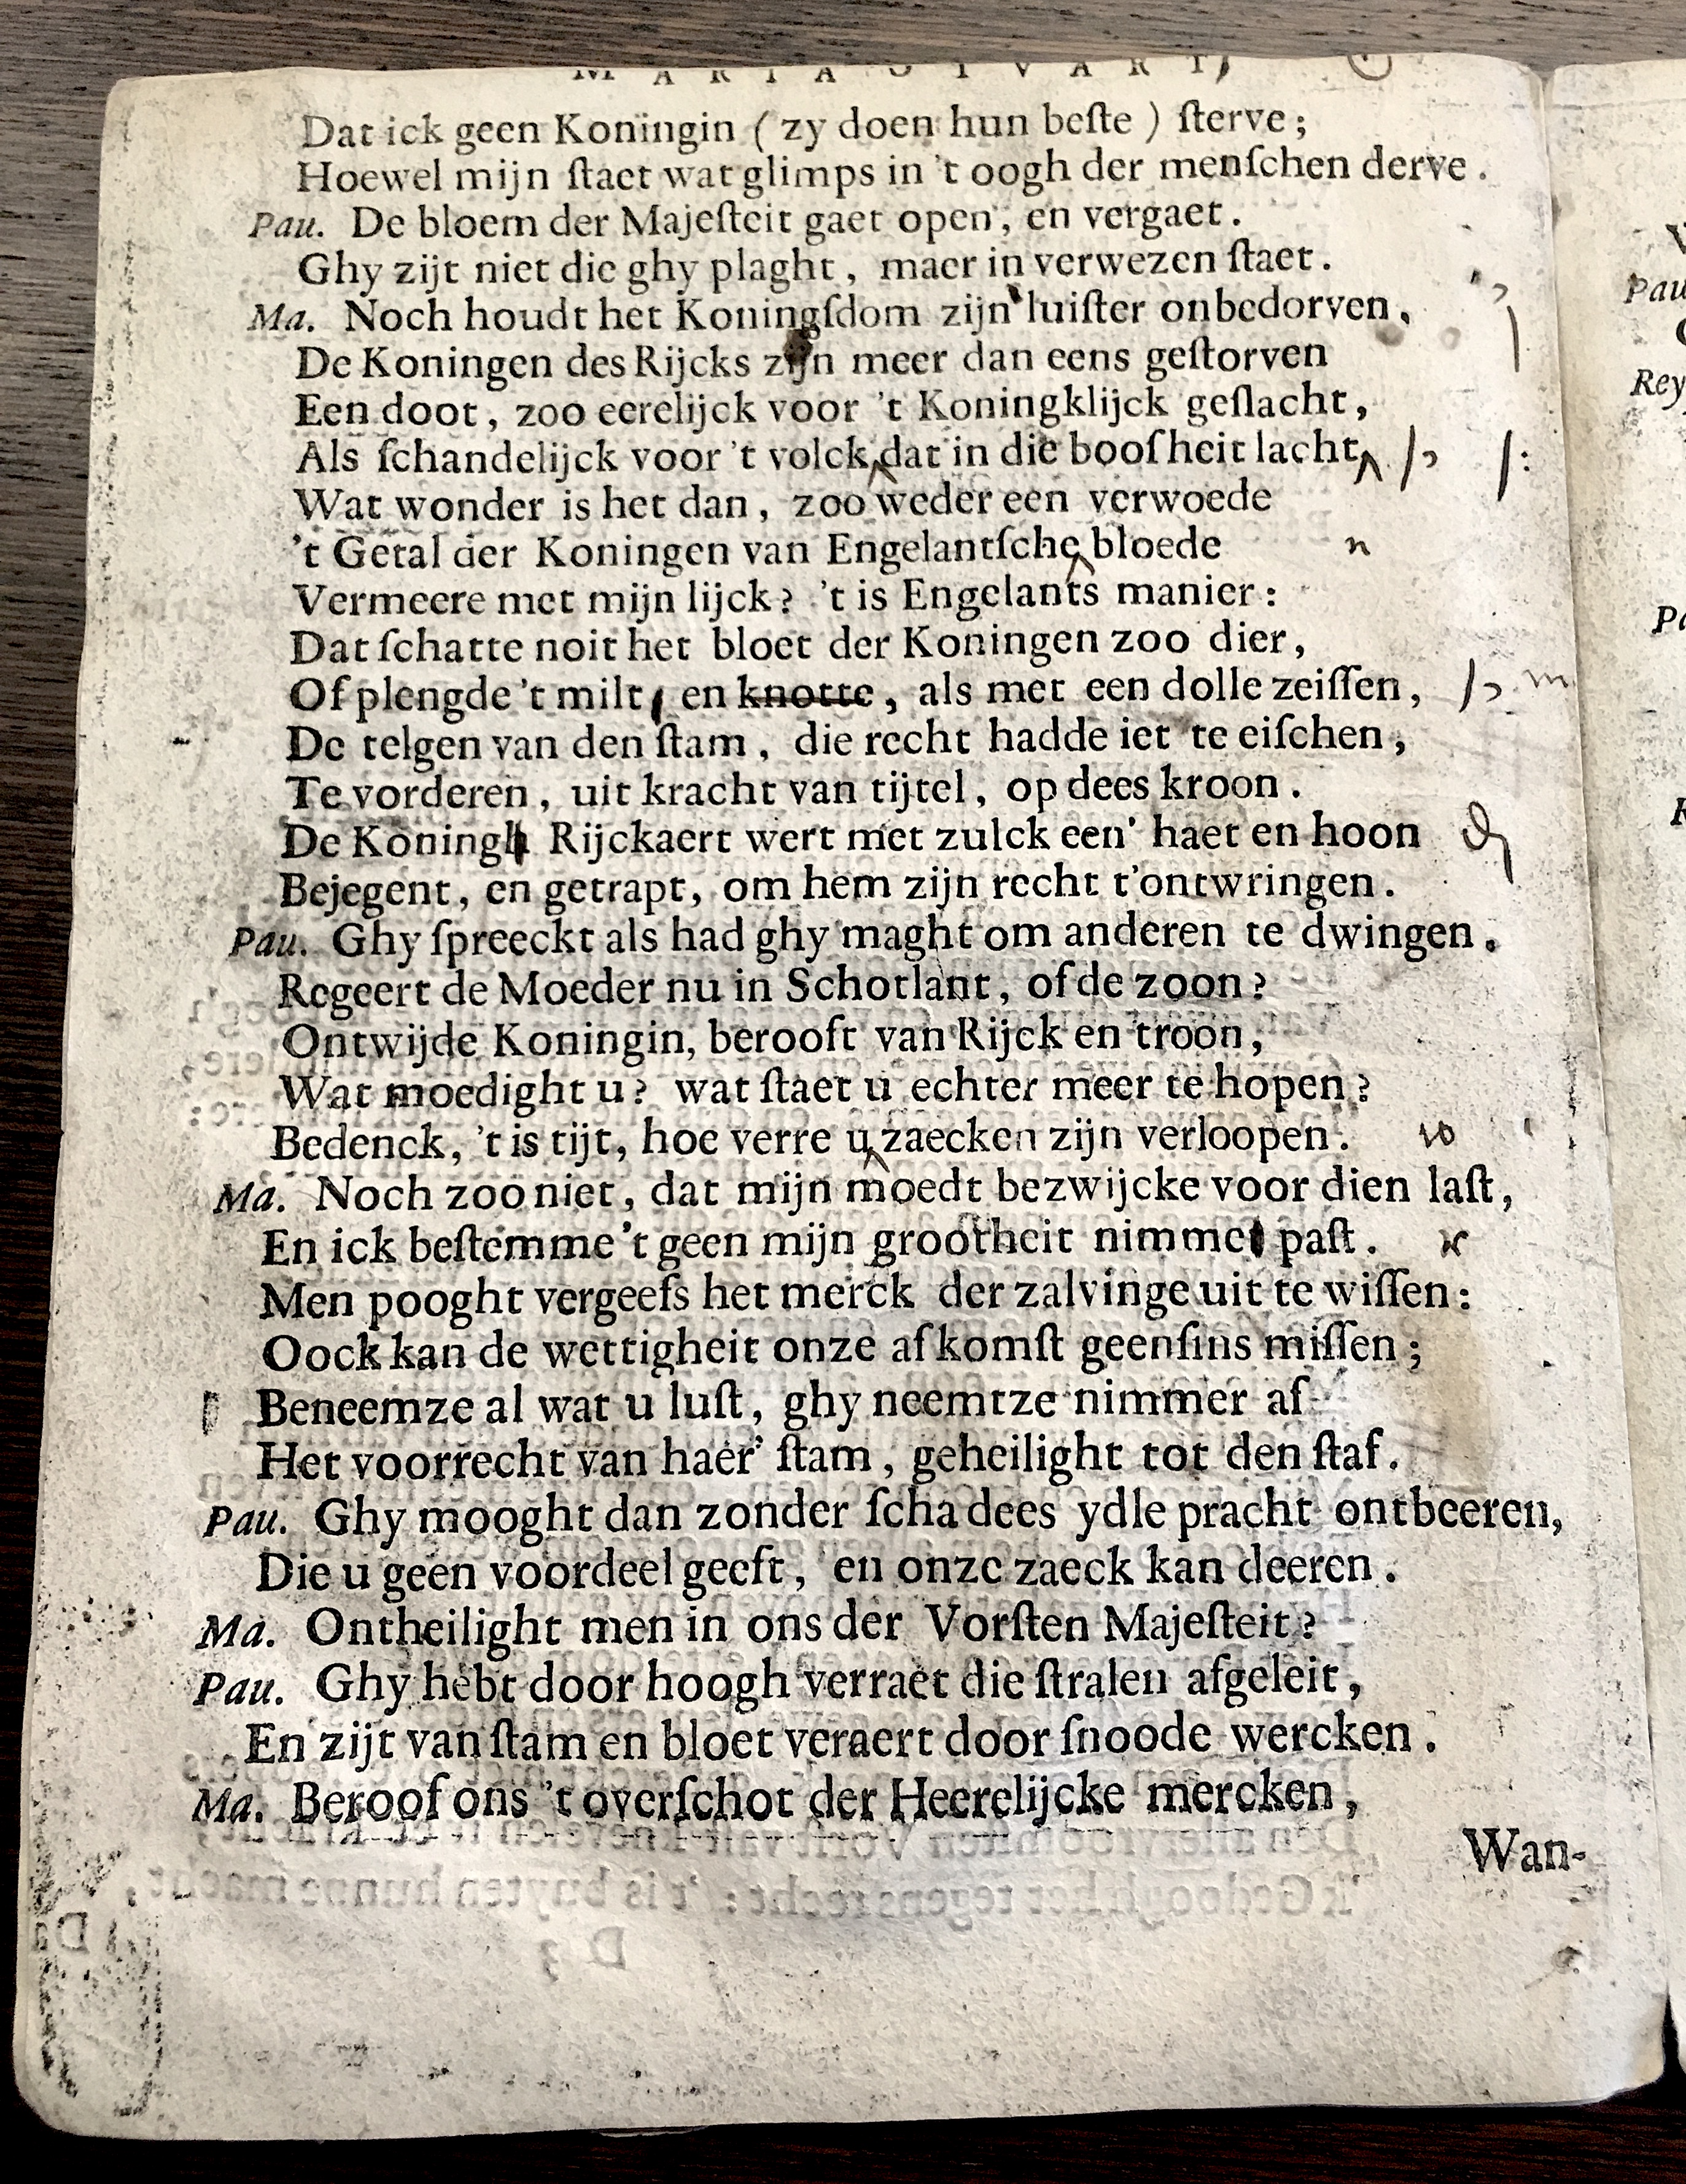 MARIA STVART
Dat ick geen Koningin ( zy doen hun beſte ) ſterve;
Hoewel mijn ſtaet wat glimps in 't oogh der menſchen derve.
Pau. De bloem der Majeſteit gaet open, en vergaet.
Ghy zijt niet die ghy plaght, maer in verwezen ſtaet.
Ma. Noch houdt het Koningſdom zijn luiſter onbedorven,
De Koningen des Rijcks zijn meer dan eens geſtorven
Een doot, zoo eerelijck voor 't Koningklijck geſlacht,
Als ſchandelijck voor 't volck dat in die booſheit lacht,
Wat wonder is het dan, zoo weder een verwoede
't Getal der Koningen van Engelantſche bloede n
Vermeere met mijn lijck? 't is Engelants manier:
Dat ſchatte noit het bloet der Koningen zoo dier,
Of plengde 't milt, en knotte, als met een dolle zeiſſen,
De telgen van den ſtam, die recht hadde iet te eiſchen,
Te vorderen, uit kracht van tijtel, op dees kroon.
De Koningh Rijckaert wert met zulck een' haet en hoon
Bejegent, en getrapt, om hem zijn recht t'ontwringen.
Pau. Ghy ſpreeckt als had ghy maght om anderen te dwingen.
Regeert de Moeder nu in Schotlant, of de zoon?
Ontwijde Koningin, berooft van Rijck en troon,
Wat moedight u? wat ſtaet u echter meer te hopen?
Bedenck, 't is tijt, hoe verre u zaecken zijn verloopen. w
Ma. Noch zoo niet, dat mijn moedt bezwijcke voor dien laſt,
En ick beſtemme 't geen mijn grootheit nimmet paſt. r
Men pooght vergeefs het merck der zalvinge uit te wiſſen:
Oock kan de wettigheit onze afkomſt geenſins miſſen;
Beneemze al wat u luſt, ghy neemtze nimmer af
Het voorrecht van haer' ſtam, geheilight tot den ſtaf.
Pau. Ghy mooght dan zonder ſcha dees ydle pracht ontbeeren,
Die u geen voordeel geeft, en onze zaeck kan deeren.
Ma. Ontheilight men in ons der Vorſten Majeſteit?
Pau. Ghy hebt door hoogh verraet die ſtralen afgeleit,
En zijt van ſtam en bloet veraert door ſnoode wercken.
Ma. Beroof ons 't overſchot der Heerelijcke mercken,
Wan-